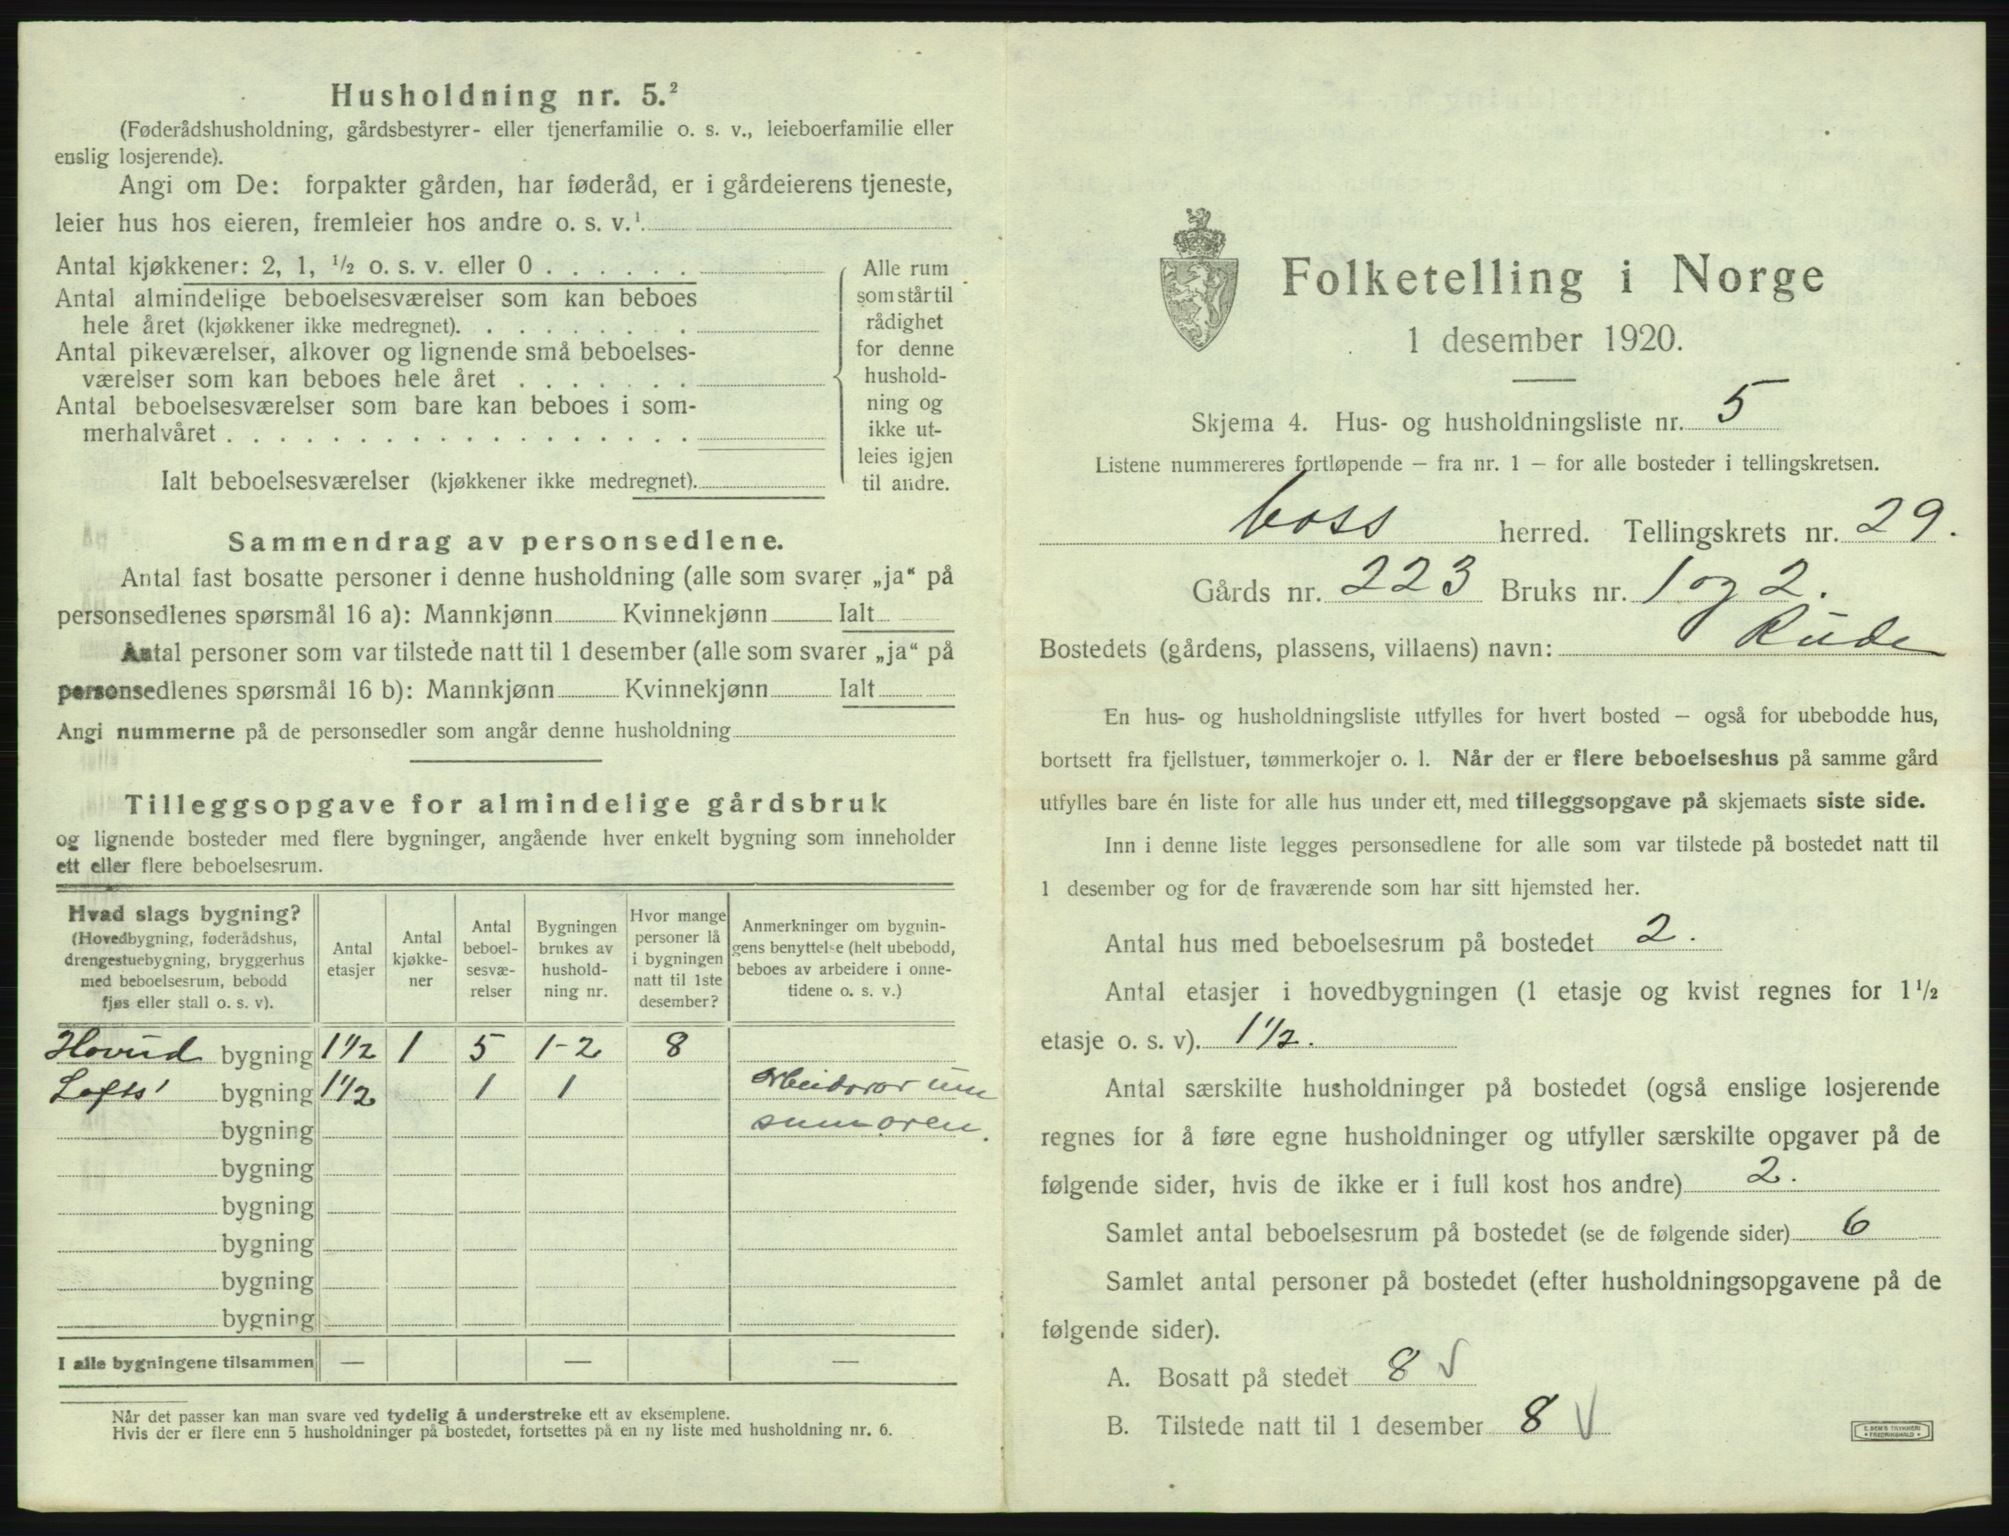 Husholdning nr. 5.²
(Føderådshusholdning, gårdsbestyrer- eller tjenerfamilie o. s. v., leieboerfamilie eller
enslig losjerende).
Angi om De: forpakter gården, har føderåd, er i gårdeierens tjeneste,
leier hus hos eieren, fremleier hos andre o. s. v.¹
Antal kjøkkener: 2, 1, ½ o. s. v. eller 0 . . . . . .
Antal almindelige beboelsesværelser som kan beboes
hele året (kjøkkener ikke medregnet). . . . . . . . .
Antal pikeværelser, alkover og lignende små beboelses-
værelser som kan beboes hele året . . . . . . .
Antal beboelsesværelser som bare kan beboes i som-
merhalvåret . . . . . . . . . . . . . . . . . .
Ialt beboelsesværelser (kjøkkener ikke medregnet).
Alle rum
som står til
rådighet
for denne
hushold-
ning og
ikke ut-
leies igjen
til andre.
Sammendrag av personsedlene.
Antal fast bosatte personer i denne husholdning (alle som svarer „ja“ på
personsedlenes spørsmål 16 a): Mannkjønn Kvinnekjønn Ialt
Antal personer som var tilstede natt til 1 desember (alle som svarer „ja“ på
personsedlenes spørsmål 16 b): Mannkjønn Kvinnekjønn Ialt
Angi nummerne på de personsedler som angår denne husholdning
Tilleggsopgave for almindelige gårdsbruk
og lignende bosteder med flere bygninger, angående hver enkelt bygning som inneholder
ett eller flere beboelsesrum.
Hvad slags bygning?
(Hovedbygning, føderådshus,
drengestuebygning, bryggerhus
med beboelsesrum, bebodd
fjøs eller stall o. s. v).
Antal
etasjer
Antal
kjøkke-
ner
Antal
beboel-
sesvæ-
relser
Bygningen
brukes av
hushold-
ning nr.
Hvor mange
personer lå
i bygningen
natt til 1ste
desember?
Anmerkninger om bygnin-
gens benyttelse (helt ubebodd,
beboes av arbeidere i onne-
tidene o. s. v.)
Hovud bygning 1½ 1 5 1-2 8
Lofts' bygning 1½ 1 1 arbeidarar um
bygning sumaren.
bygning
bygning
bygning
bygning
bygning
I alle bygningene tilsammen — — —
Når det passer kan man svare ved tydelig å understreke ett av eksemplene.
Hvis der er flere enn 5 husholdninger på bostedet, fortsettes på en ny liste med husholdning nr. 6.
Folketelling i Norge
1 desember 1920.
Skjema 4. Hus- og husholdningsliste nr. 5
Listene nummereres fortløpende – fra nr. 1 – for alle bosteder i tellingskretsen.
Voss herred. Tellingskrets nr. 29.
Gårds nr. 223 Bruks nr. 1 og 2.
Bostedets (gårdens, plassens, villaens) navn: Rude
En hus- og husholdningsliste utfylles for hvert bosted – også for ubebodde hus,
bortsett fra fjellstuer, tømmerkojer o. l. Når der er flere beboelseshus på samme gård
utfylles bare én liste for alle hus under ett, med tilleggsopgave på skjemaets siste side.
Inn i denne liste legges personsedlene for alle som var tilstede på bostedet natt til
1 desember og for de fraværende som har sitt hjemsted her.
Antal hus med beboelsesrum på bostedet 2.
Antal etasjer i hovedbygningen (1 etasje og kvist regnes for 1½
etasje o. s. v). 1½.
Antal særskilte husholdninger på bostedet (også enslige losjerende
regnes for å føre egne husholdninger og utfyller særskilte opgaver på de
følgende sider, hvis de ikke er i full kost hos andre) 2.
Samlet antal beboelsesrum på bostedet (se de følgende sider) 6
Samlet antal personer på bostedet (efter husholdningsopgavene på de
følgende sider).
A. Bosatt på stedet 8 √
B. Tilstede natt til 1 desember 8 √
E. SEM'S TRYKKERI
FREDRIKSHALD